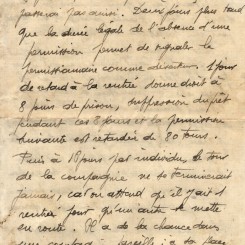 passeron j'ai aussi. Deux jours plus tard
que la durée légale de l'absence d'une
permission permet de signaler le
permissionnaire comme déserteur. 1 jour
de retard à la rentrée donne droit à
8 jours de prison, suppression du prêt
pendant ces 8 jours et la permission
suivante est retardée de 20 jours.
Mais à 10 jours par individu, le tour
de la compagnie ne se terminerait
jamais, car on attend que il y ait 1
rentré pour qu'un autre se mette
en route. Il a de la chance dans